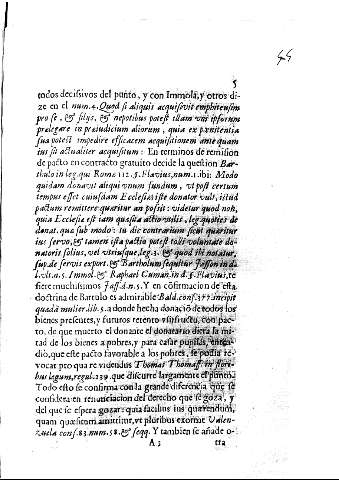 44
5
todos decisivos del punto, y con Immola, y otros di-
ze en el num.4. Quod si aliquis acquisivit emphiteusim
pro se, & filijs, & nepotibus potest illam vni ipsorum
prælegare in præiudicium aliorum, quia ex pœnitentia
sua potest impedire efficacem acquisitionem ante quam
ius sit actualiter acquisitum: En terminos de remision
de pacto en contracto gratuito decide la question Bar-
thulo in leg. qui Romæ 122.§. Flavius, num.1. ibi: Modo
quidam donavit aliqui vnum fundum, vt post certum
tempus esset cuiusdam Ecclesiæ iste donator vult, istud
pactum remittere quæritur an possit: videtur quod non,
quia Ecclesia est iam quæsita actio vtilis, leg. quoties de
donat. quæ sub modo: tu dic contrarium sicut quæritur
ius servo, & tamen ista pactio potest tolli voluntate do-
natoris solius, vel vtriusque, leg.3. & quod ibi notatur,
sup. de servis export. & Bartholum sequitur Jasson in d.
leg. vlt.§. Immol. & Raphael Cuman. in d.§. Flavius, re-
fiere muchissimos Jass. d.n.5. Y en cõfirmacion de esta
doctrina de Bartulo es admirable Bald. conf.377. incipit
quædam mulier lib.5. a donde hecha donaciõ de todos los
bienes presentes, y futuros retento vsufructu, con pac-
to, de que muerto el donante el donatario diera la mi-
tad de los bienes a pobres, y para casar pupilas,
dio, que este pacto favorable a los pobres, se podia re-
vocar pro qua re videndus Thomas Thomass. in flori-
bus legum, regul.239. que discurre largamente el punto.
Todo esto se confirma con la grande diferencia que se
considera en renunciacion del derecho que se goza, y
del que se espera gozar: quia facilius ius quærendum,
quam quæsitum amittitur, vt pluribus exornat Valen-
zuela conf.83. num.58. & seqq. Y tambien se añade o-
A 3
tra